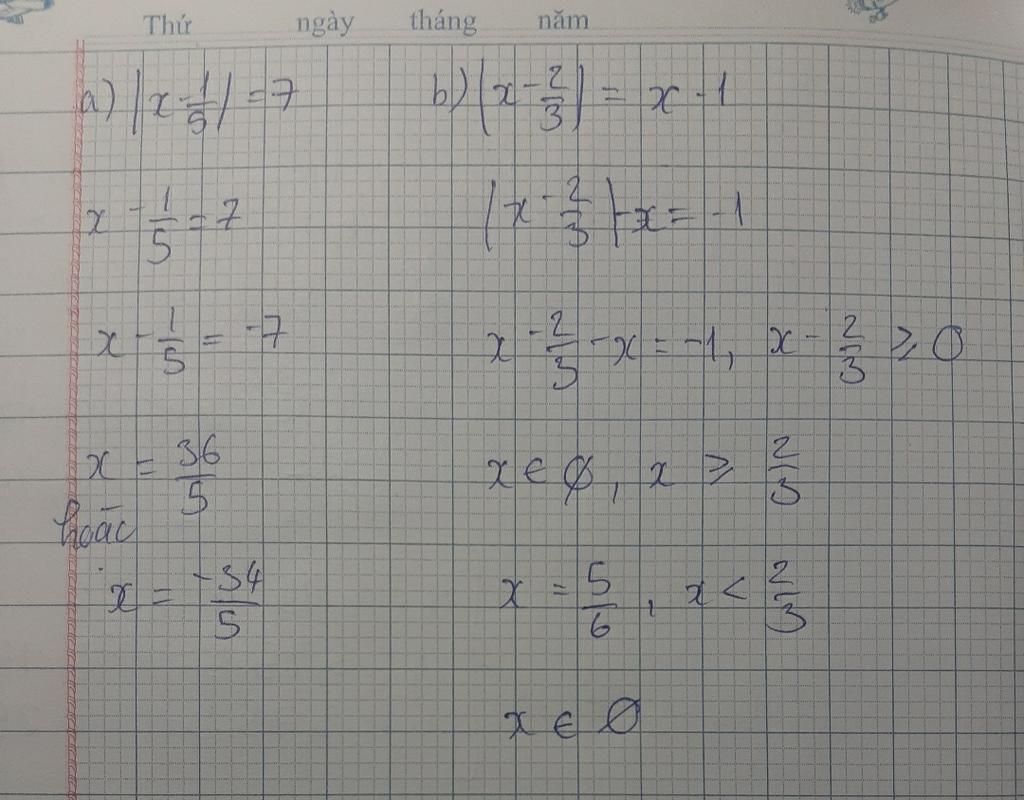 Thứ ngày tháng năm
a) |x - 1/5| = 7
x - 1/5 = 7
x - 1/5 = -7
x = 36/5
hoăc
x = -34/5
b) |x - 2/3| = x - 1
|x - 2/3| - x = -1
x - 2/3 - x = -1, x - 2/3 ⩾ 0
x ∈ ∅, x ⩾ 2/3
x = 5/6, x < 2/3
x ∈ ∅